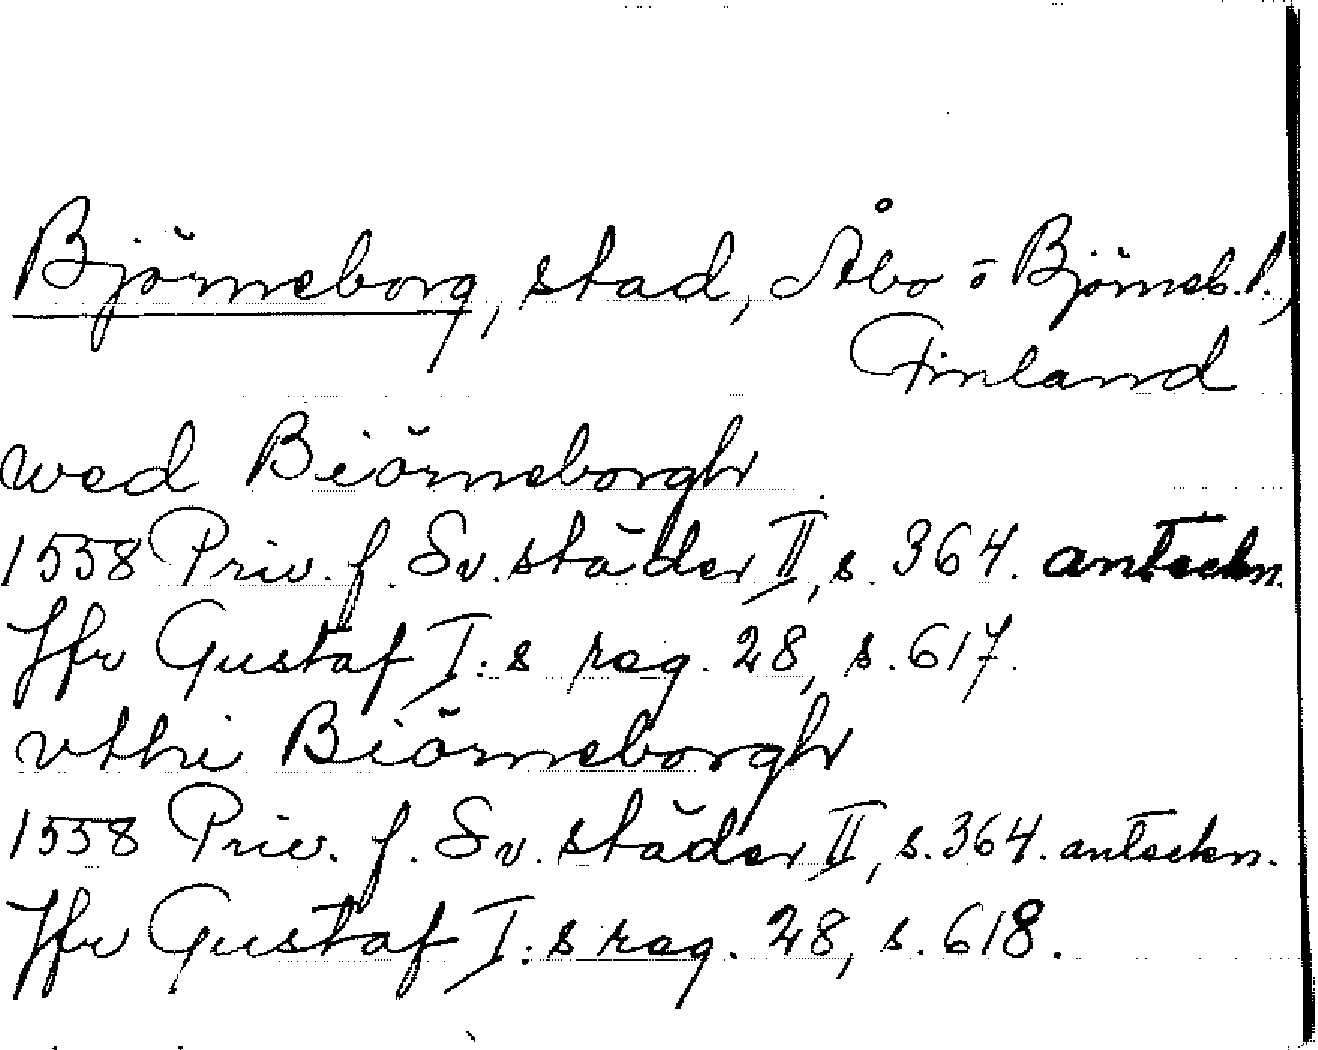 Björneborg, stad, Åbo o Björneb. l.,
Finland
wed Biörneborgh
1558 Priv. f. Sv. städer II, s. 364. anteckn.
Jfr Gustaf I:s reg. 28, s. 617.
vthi Biörneborgh
1558 Priv. f. Sv. städer II, s. 364. anteckn.
Jfr Gustaf I:s reg. 28, s. 618.